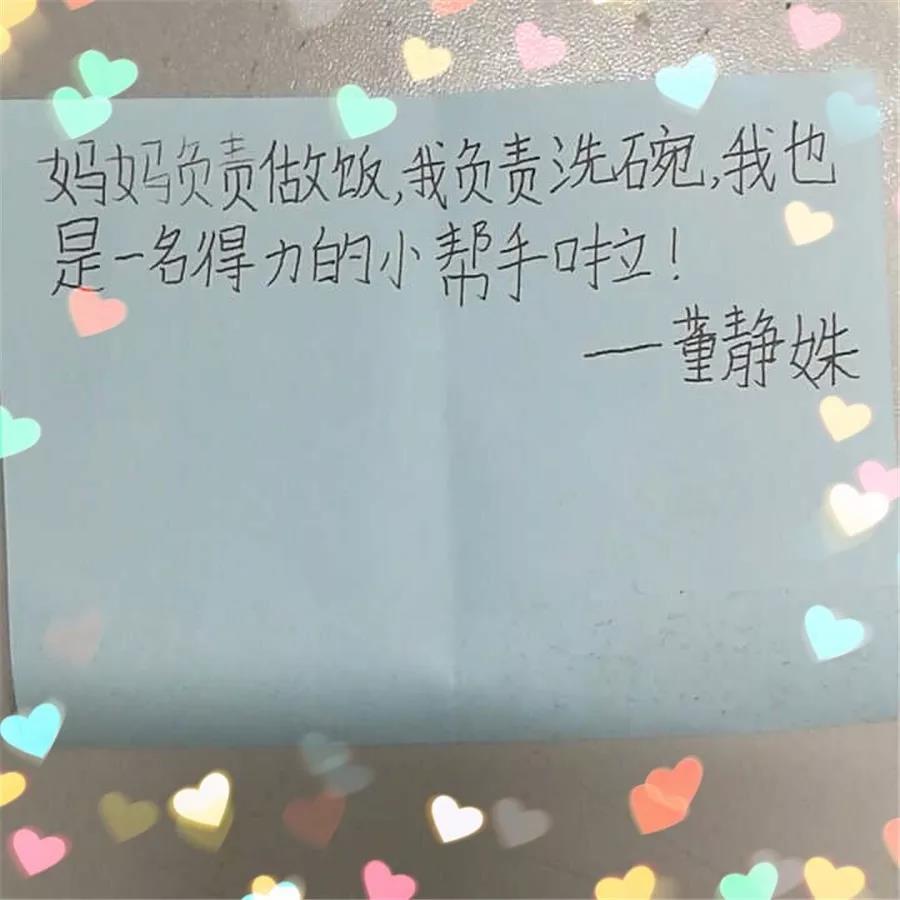 妈妈负责做饭,我负责洗碗,我也
是一名得力的小帮手啦!
——董静姝